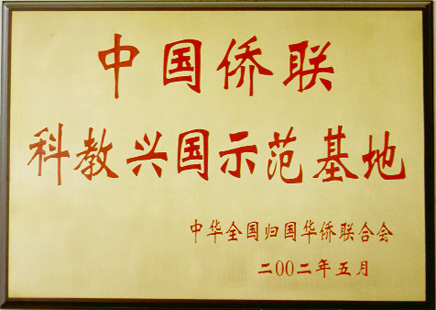 中国侨联
科教兴国示范基地
中华全国归国华侨联合会
二00二年五月